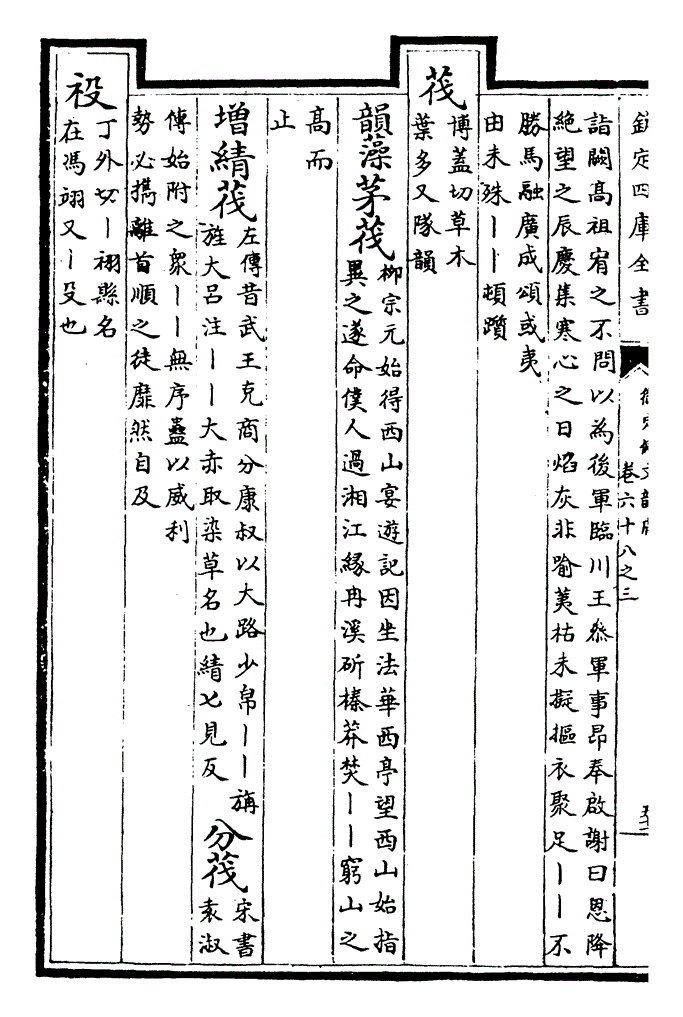 欽定四庫全書
卷六十八之三
詣闕髙祖宥之不問以為後軍臨川王叅軍事昂奉啟謝曰恩降
絶望之辰慶集寒心之日焰灰非喻荑枯未擬摳衣聚足丨丨不
勝馬融廣成頌或夷
由未殊丨丨頓躓
茷
博蓋切草木
葉多又隊韻
韻藻茅茷
柳宗元始得西山宴遊記因坐法華西亭望西山始指
異之遂命僕人過湘江緣冉溪斫榛莽焚丨丨窮山之
髙而
止
增綪茷
左傳昔武王克商分康叔以大路少帛丨丨旃
旌大呂注丨丨大赤取染草名也綪七見反
分茷
宋書
袁淑
傳始附之衆丨丨無序蠱以威利
勢必攜離首順之徒靡然自及
祋
丁外切丨祤縣名
在馮翊又丨殳也